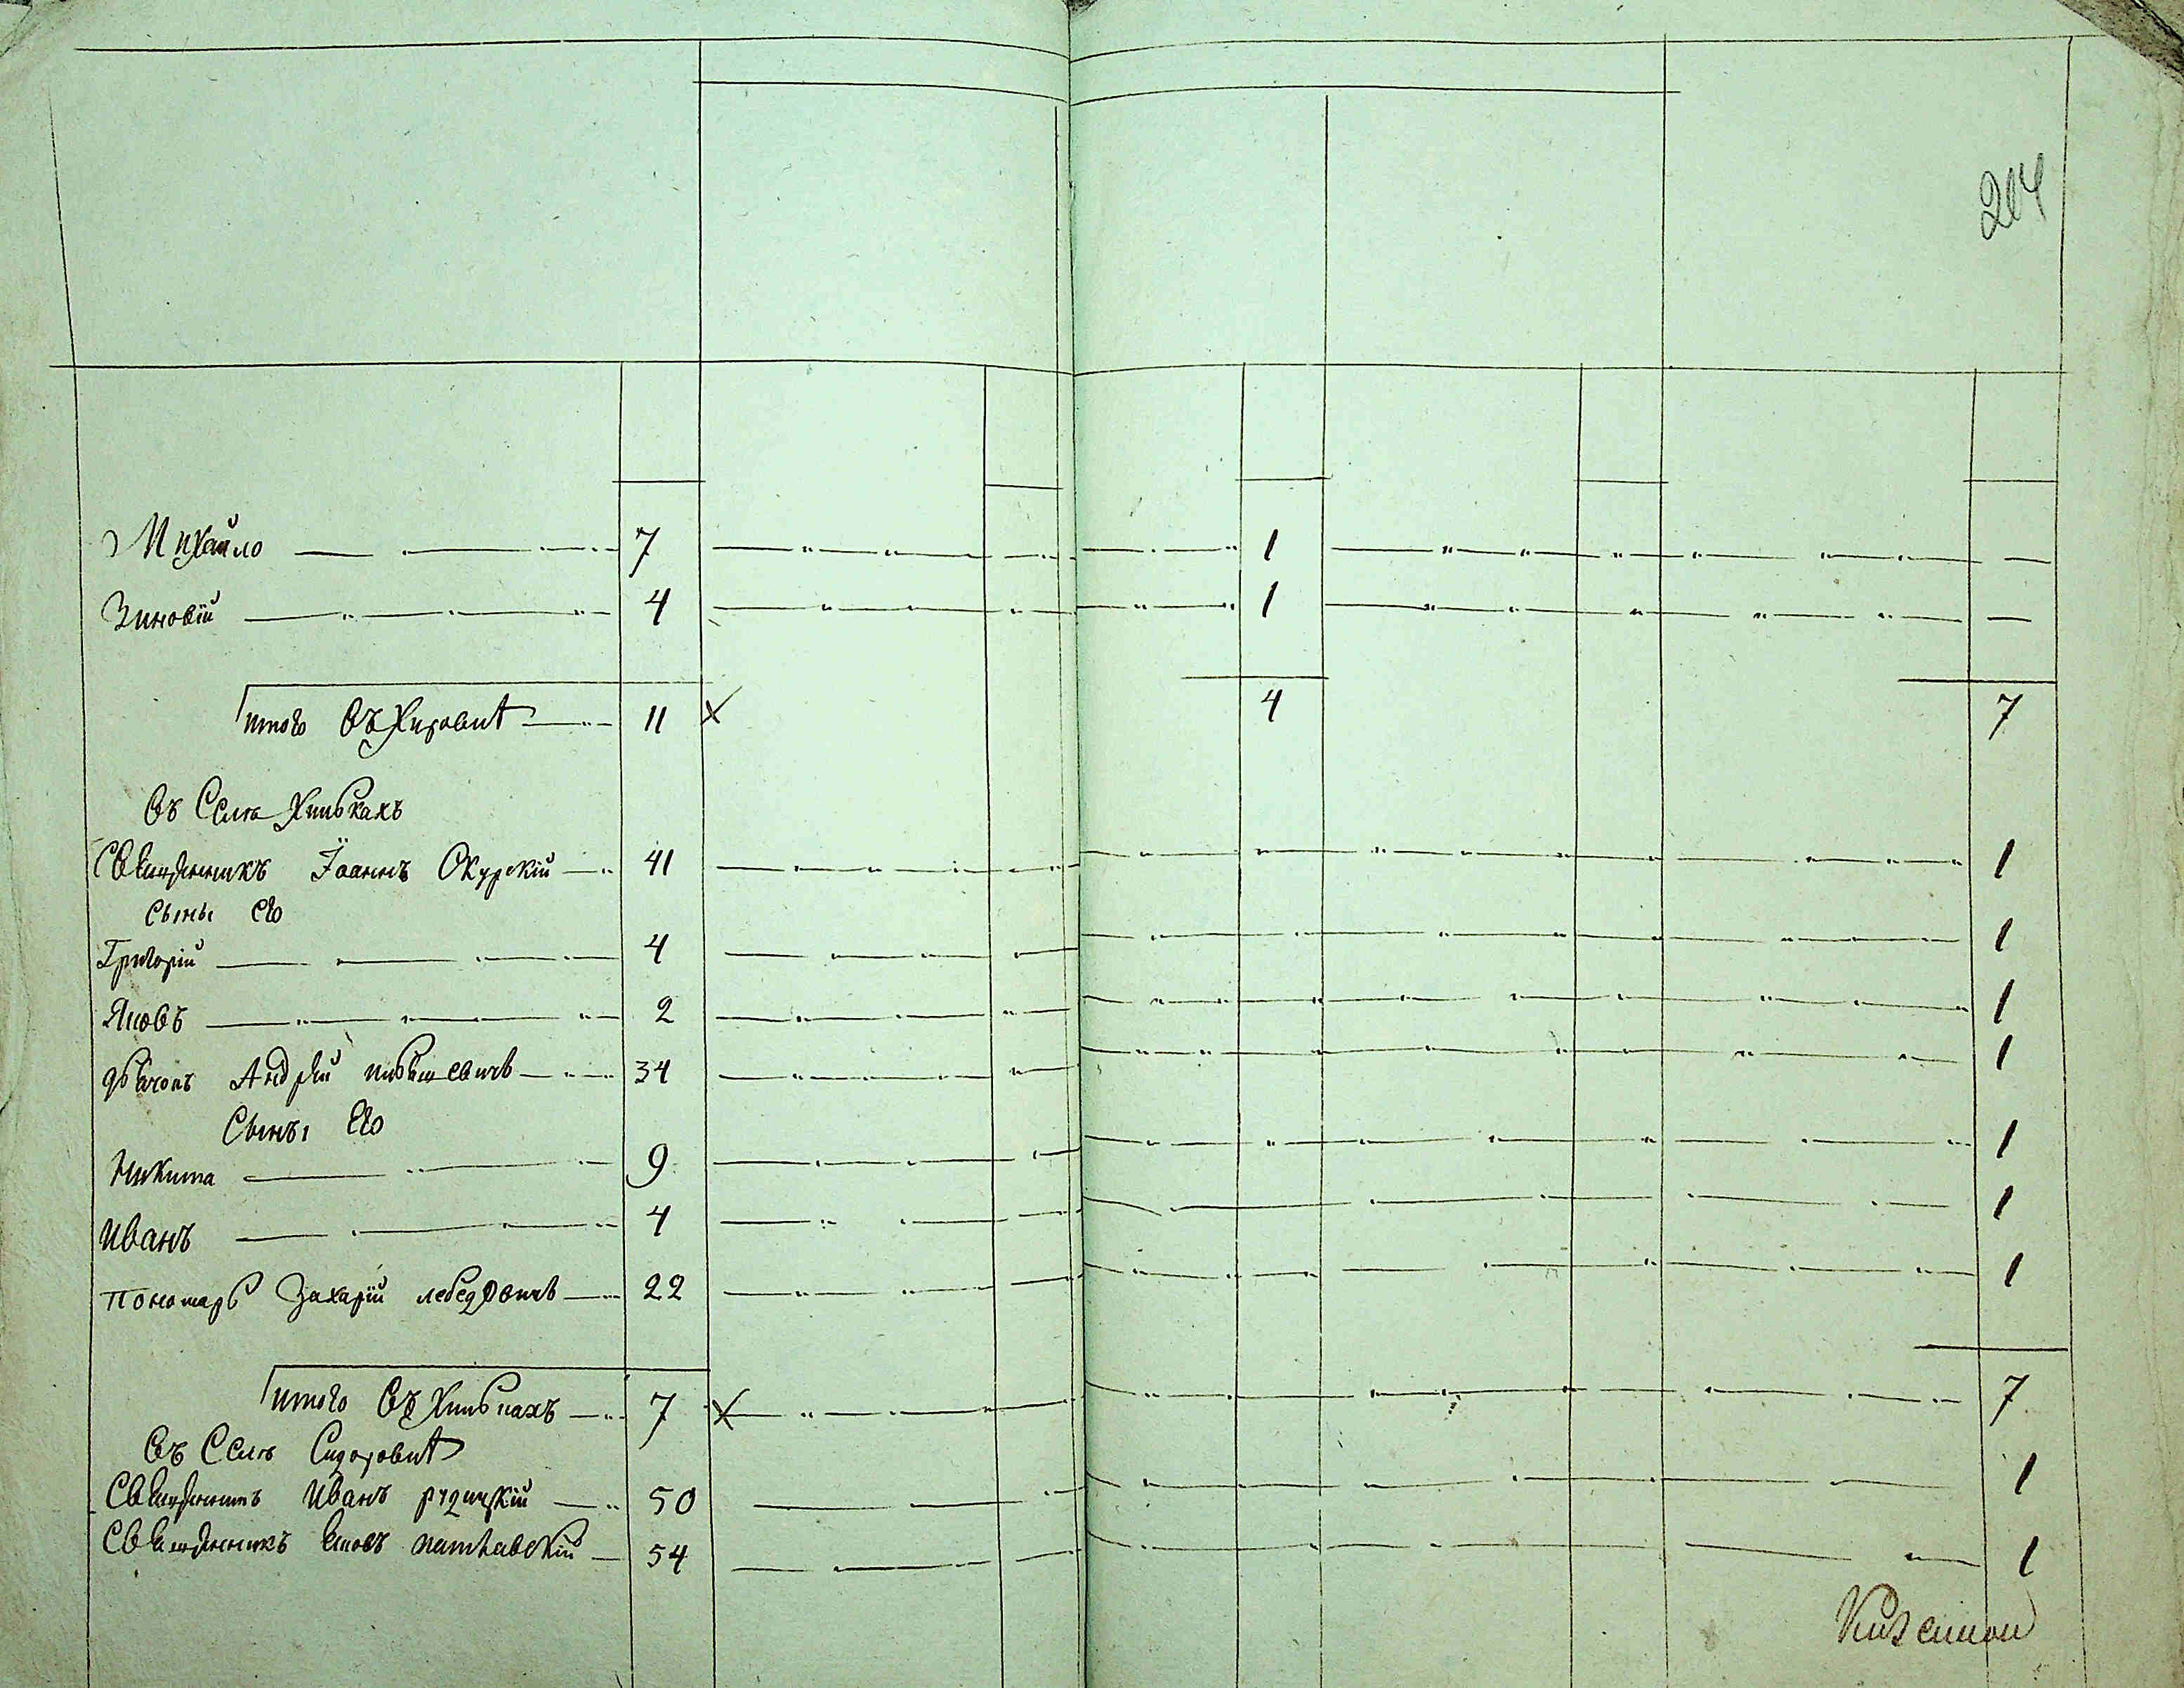 204
Михайло 7 1 —
Зиновій 4 1 —
итого въ Хировичѣ 11 × 4 7
въ Селѣ Хильчахъ
Священникъ Іоаннъ Окурскій 41 1
сыны его
Григорій 4 1
Яковъ 2 1
дьячокъ Андрей 34 1
Сыны Его
Никита 9 1
Иванъ 4 1
Пономарь Захарій 22 1
итого въ Хильчахъ 7 × 7
въ Селѣ Сидоровичѣ
Священникъ Иванъ 50 1
Священникъ 54 1